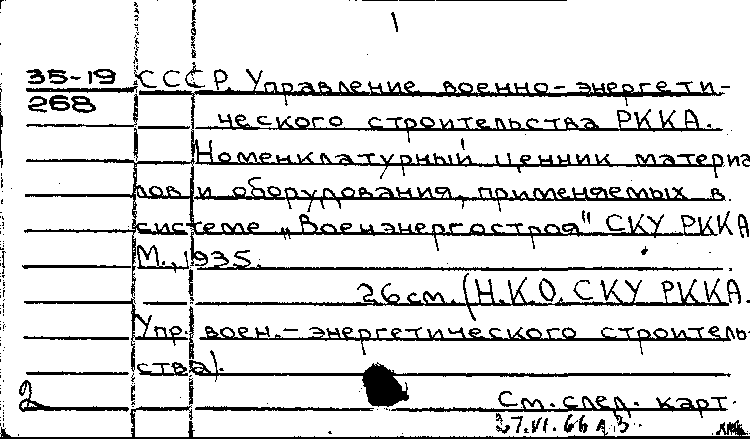 1
35-19 СССР. Управление военно-энергети-
268
ческого строительства РККА.
Номенклатурный ценник материа
лов и оборудования, применяемых в
системе „Военэнергостроя" СКУ РККА
М., 1935.
26 см. (Н.К.О. СКУ РККА.
Упр. воен.-энергетического строитель-
ства).
2 См. след. карт.
27.VI.66